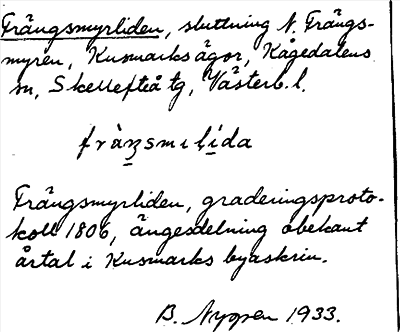 Frängsmyrliden, sluttning N. Frängs-
myren, Kusmarks ägor, Kågedalens
sn, Skellefteå tg, Västerb. l.
frängsmılída
Frängsmyrliden, graderingsproto-
koll 1806, ängesdelning obekant
årtal i Kusmarks byaskrin.
B. Nygren 1933.